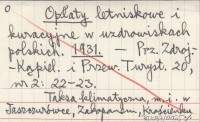 Opłaty letniskowe i
kuracyjne w uzdrowiskach
polskich. 1931. — Prz. Zdroj.-
Kąpiel. i Przew. Turyst. 20,
nr 2: 22-23.
Taksa klimatyczna, m. i. w
Jaszczurówce, Zakopanem, Krościenku